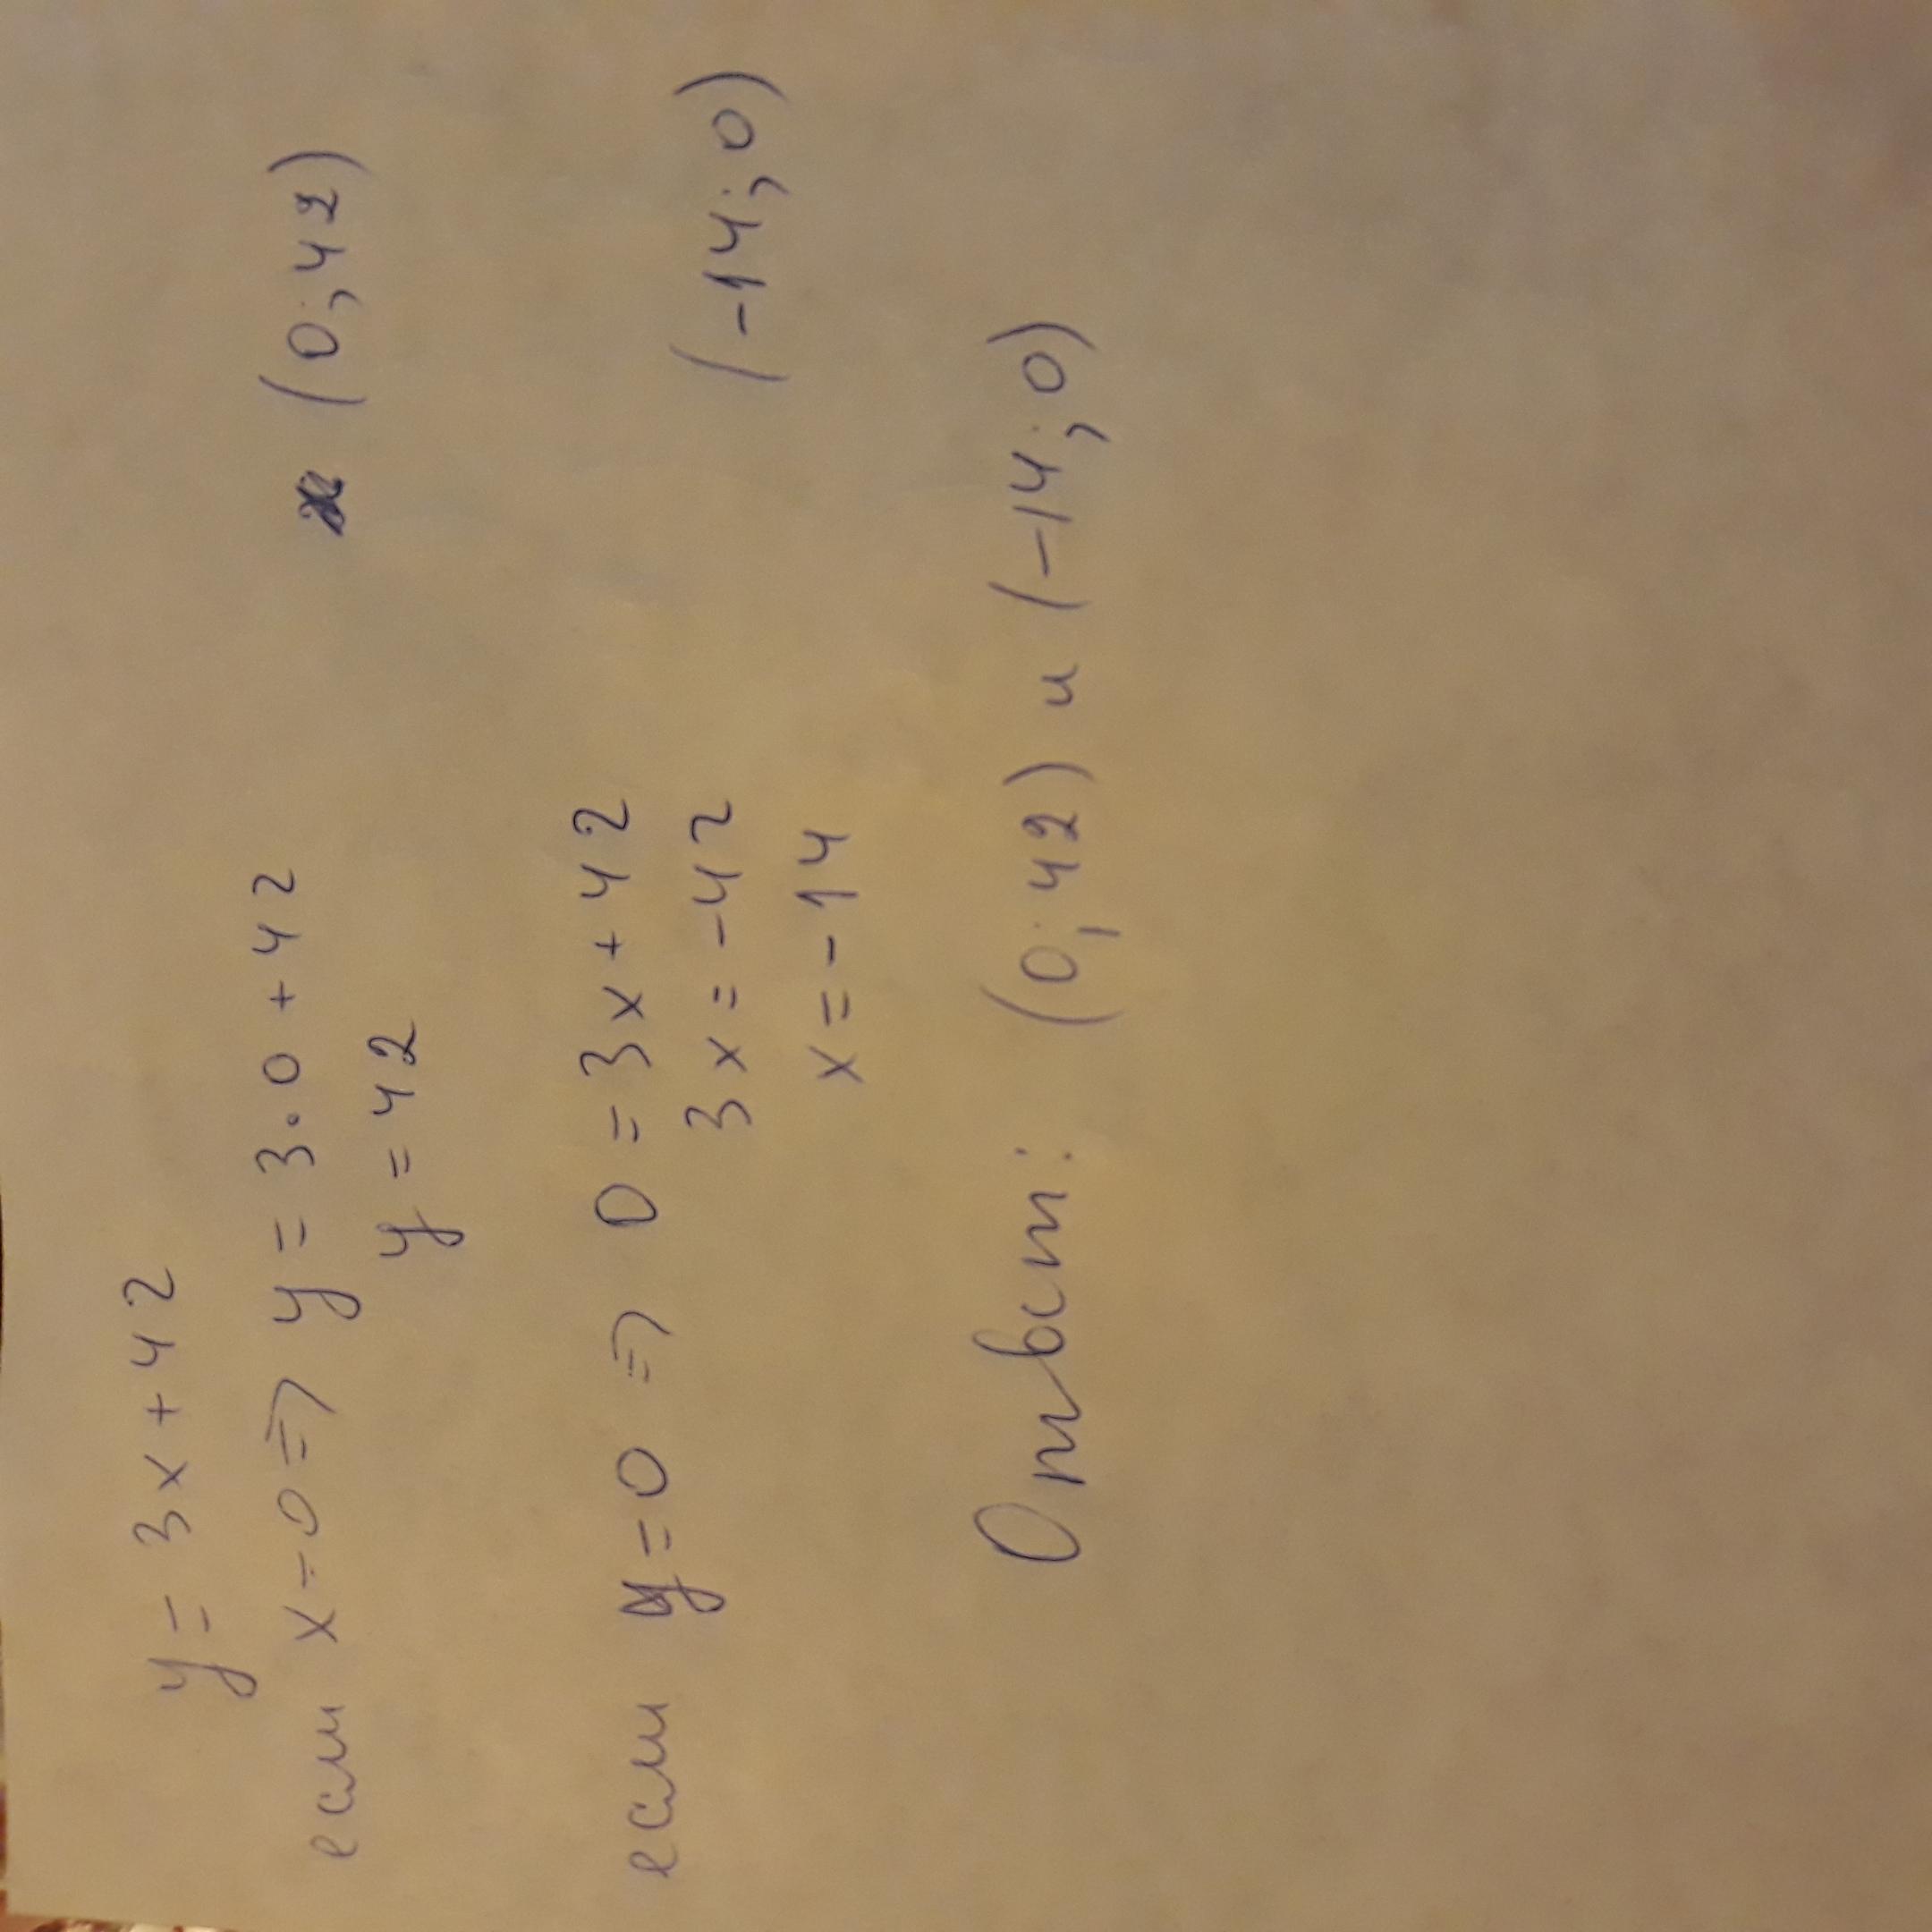 y = 3x + 42
если x = 0 => y = 3 · 0 + 42 (0; 42)
y = 42
если y = 0 => 0 = 3x + 42
3x = -42 (-14; 0)
x = -14
Ответ: (0; 42) и (-14; 0)